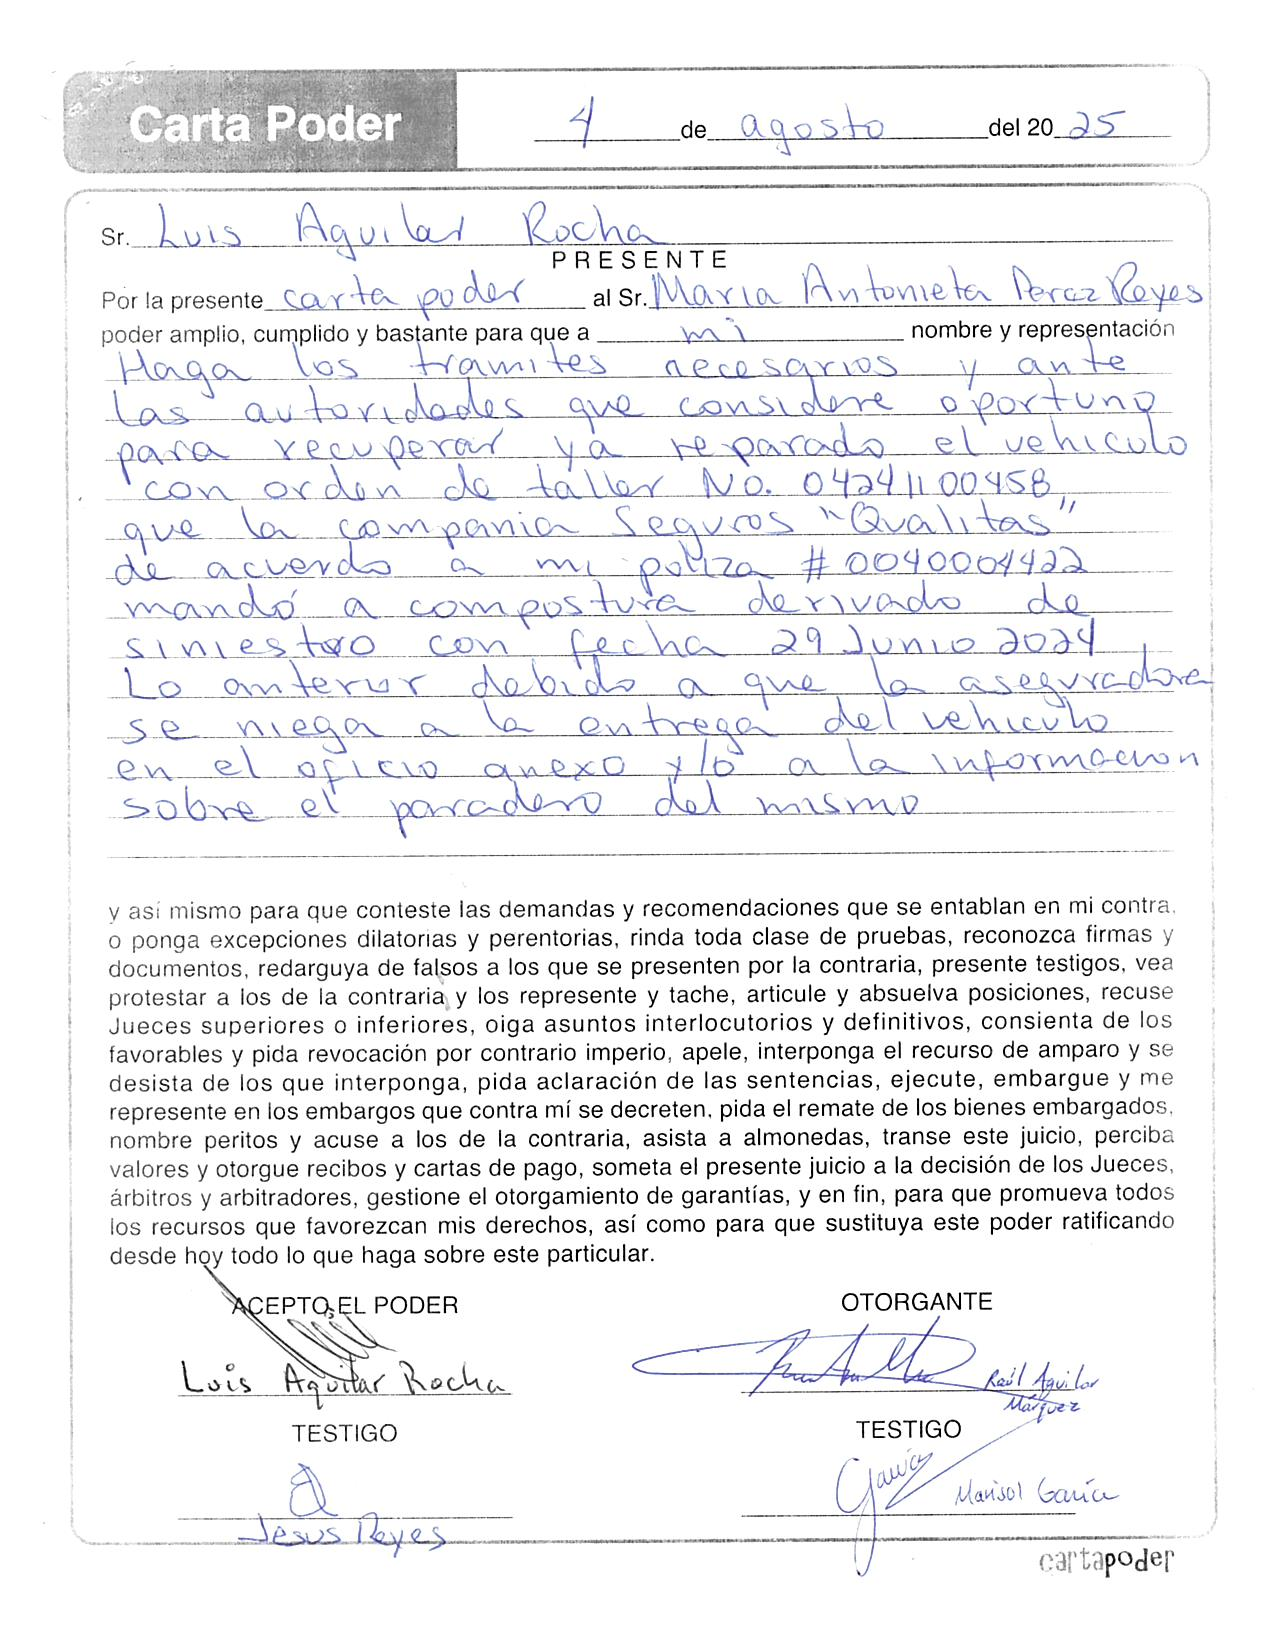 Carta Poder
4 de agosto del 2025
Sr. Luis Aguilar Rocha
PRESENTE
Por la presente carta poder al Sr. Maria Antonieta Perez Reyes
poder amplio, cumplido y bastante para que a mi nombre y representación
Haga los tramites necesarios y ante
las autoridades que considere oportuno
para recuperar ya reparado el vehiculo
con orden de taller No. 04241100458
que la compania Seguros "Qualitas"
de acuerdo a mi poliza # 0040004422
mandó a compostura derivado de
siniestro con fecha 29 Junio 2024
Lo anterior debido a que la aseguradora
se niega a la entrega del vehiculo
en el oficio anexo y/o a la informacion
sobre el paradero del mismo
y así mismo para que conteste las demandas y recomendaciones que se entablan en mi contra,
o ponga excepciones dilatorias y perentorias, rinda toda clase de pruebas, reconozca firmas y
documentos, redarguya de falsos a los que se presenten por la contraria, presente testigos, vea
protestar a los de la contraria y los represente y tache, articule y absuelva posiciones, recuse
Jueces superiores o inferiores, oiga asuntos interlocutorios y definitivos, consienta de los
favorables y pida revocación por contrario imperio, apele, interponga el recurso de amparo y se
desista de los que interponga, pida aclaración de las sentencias, ejecute, embargue y me
represente en los embargos que contra mí se decreten, pida el remate de los bienes embargados,
nombre peritos y acuse a los de la contraria, asista a almonedas, transe este juicio, perciba
valores y otorgue recibos y cartas de pago, someta el presente juicio a la decisión de los Jueces,
árbitros y arbitradores, gestione el otorgamiento de garantías, y en fin, para que promueva todos
los recursos que favorezcan mis derechos, así como para que sustituya este poder ratificando
desde hoy todo lo que haga sobre este particular.
ACEPTO EL PODER
OTORGANTE
Luis Aguilar Rocha
Raúl Aguilar
Márquez
TESTIGO
TESTIGO
García
Marisol García
Jesus Reyes
cartapoder